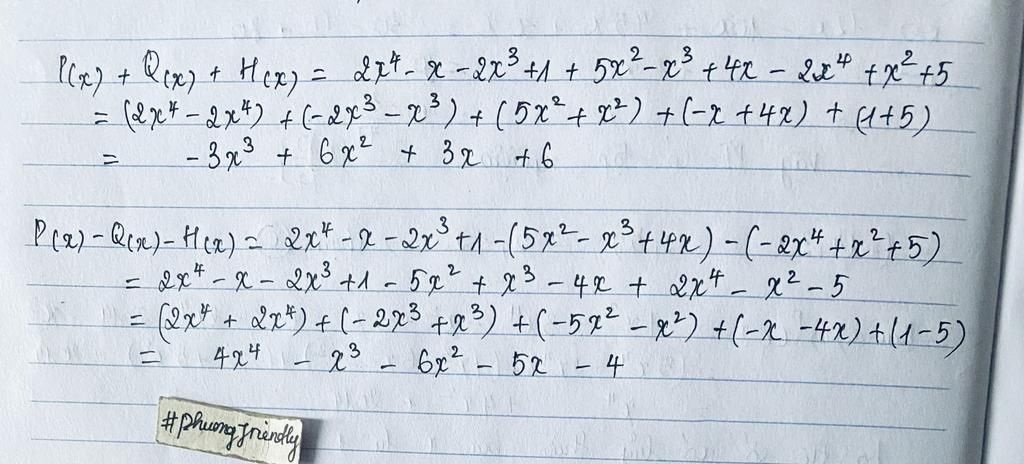 P(x) + Q(x) + H(x) = 2x⁴ - x - 2x³ + 1 + 5x² - x³ + 4x - 2x⁴ + x² + 5
= (2x⁴ - 2x⁴) + (-2x³ - x³) + (5x² + x²) + (-x + 4x) + (1+5)
= -3x³ + 6x² + 3x + 6
P(x) - Q(x) - H(x) = 2x⁴ - x - 2x³ + 1 - (5x² - x³ + 4x) - (-2x⁴ + x² + 5)
= 2x⁴ - x - 2x³ + 1 - 5x² + x³ - 4x + 2x⁴ - x² - 5
= (2x⁴ + 2x⁴) + (-2x³ + x³) + (-5x² - x²) + (-x - 4x) + (1-5)
= 4x⁴ - x³ - 6x² - 5x - 4
#phuongfriendly